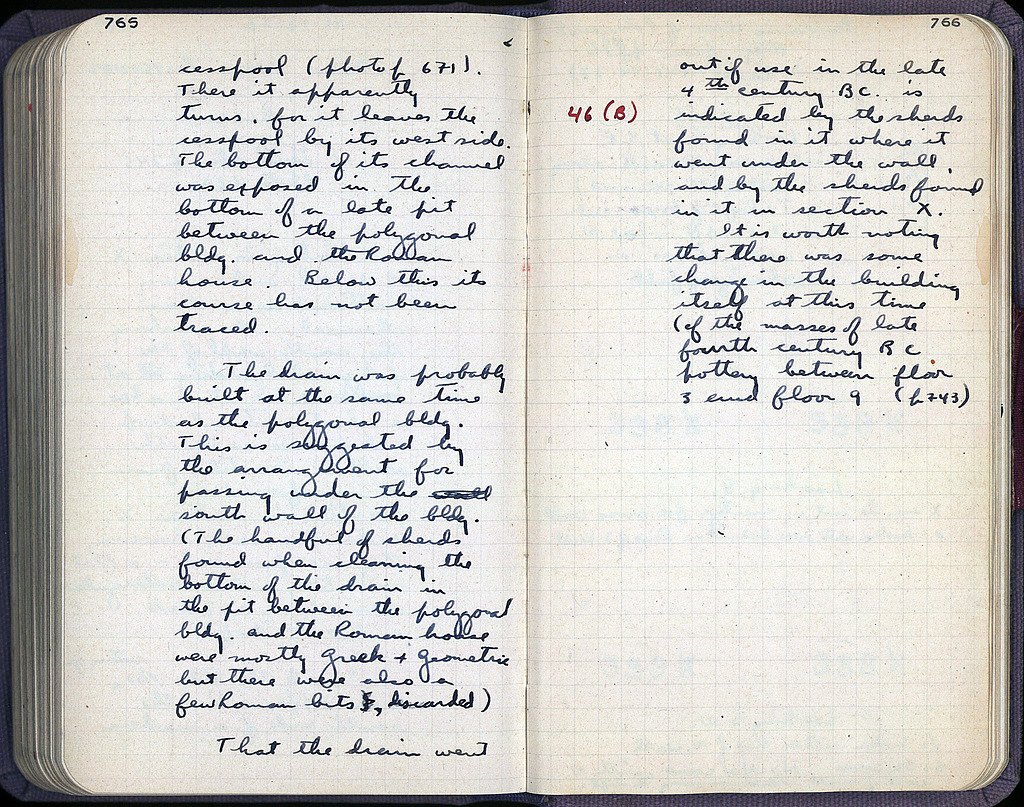 765
cesspool (photo p 671).
There it apparently
turns, for it leaves the
cesspool by its west side.
The bottom of its channel
was exposed in the
bottom of a late pit
between the polygonal
bldg. and the Roman
house. Below this its
course has not been
traced.
The drain was probably
built at the same time
as the polygonal bldg.
This is suggested by
the arrangement for
passing under the wall
south wall of the bldg.
(The handful of sherds
found when cleaning the
bottom of the drain in
the pit between the polygonal
bldg. and the Roman house
were mostly Greek + Geometric
but there were also a
few Roman bits, discarded)
That the drain went
766
out of use in the late
4th century BC. is
46 (B) indicated by the sherds
found in it where it
went under the wall,
and by the sherds found
in it in section X.
It is worth noting
that there was some
change in the building
itself at this time
(cf the masses of late
fourth century BC
pottery between floor
3 and floor 9 (p743)